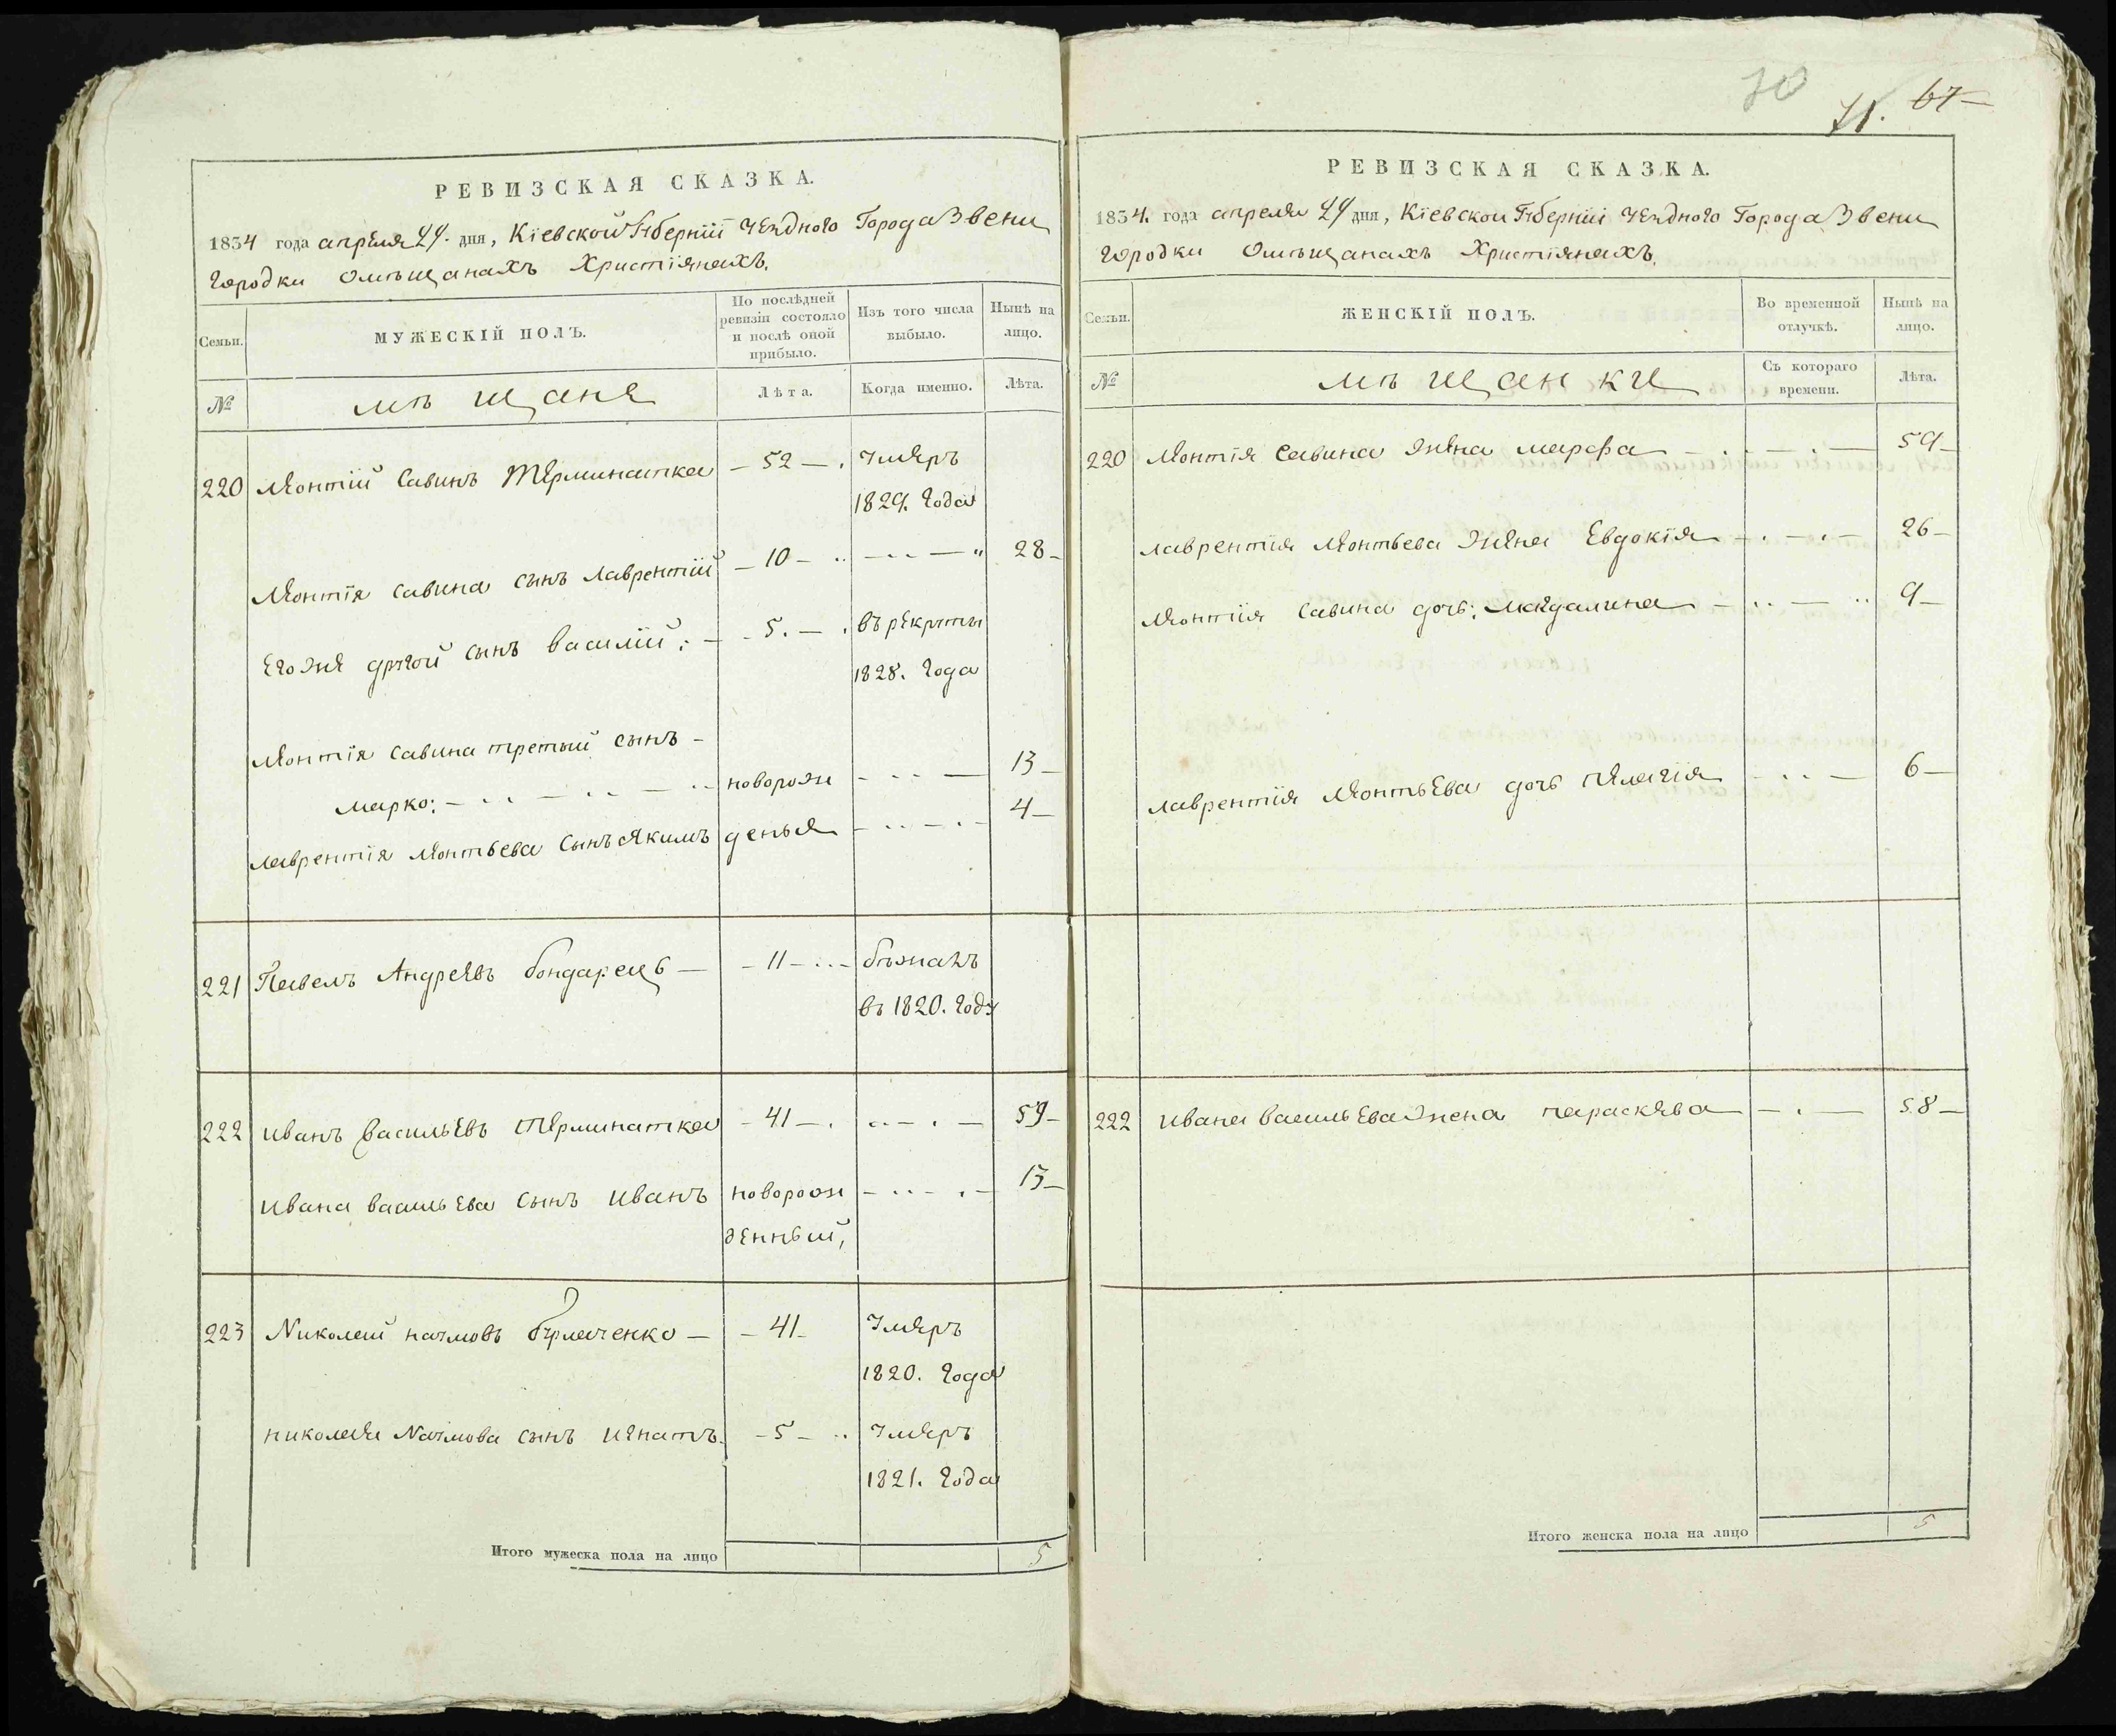 70
71. 67
РЕВИЗСКАЯ СКАЗКА.
1834 года апреля 24. дня, Кіевской Губерніи уезднаго Города Звени
Городки Омѣщанахъ Христіянахъ.
Семьи.
МУЖЕСКІЙ ПОЛЪ.
По послѣдней ревизіи состояло и послѣ оной прибыло.
Изъ того числа выбыло.
Нынѣ на лицо.
№
мѣщане
Лѣта.
Когда именно.
Лѣта.
220 Леонтій Савинъ Терминатка — 52 — . умеръ
1829. Года
Леонтія Савина сынъ Лаврентій — 10 — .. — .. — " 28 —
Егоже другой сынъ Василій; — - 5. — . въ рекруты
1828. Года
Леонтія Савина третый сынъ -
Марко: — .. — .. — .. новорож - .. — 13 —
Лаврентія Леонтьева Сынъ Якимъ денъя - .. - . - 4 —
221 Павелъ Андреевъ бондарецъ — - 11 - ... - бѣжалъ
въ 1820. Году
222 Иванъ Васильевъ Терминатка - 41 — . .. — . — 59 -
Ивана Васильева сынъ Иванъ новорож - .. - . - 13 —
денный,
223 Николай Наумовъ бурлаченко — - 41 - умеръ
1820. Года
Николая Наумова сынъ Игнатъ. - 5 - .. умеръ
1821. Года
Итого мужеска пола на лицо 5
РЕВИЗСКАЯ СКАЗКА.
1834. года апреля 24 дня, Кіевской Губерніи уезднаго Города Звени
Городки Омѣщанахъ Христіянахъ.
Семьи.
ЖЕНСКІЙ ПОЛЪ.
Во временной отлучкѣ.
Нынѣ на лицо.
№
мѣщанки
Съ котораго времени.
Лѣта.
220 Леонтія Савина жена Марфа — . - — . — 59 —
Лаврентія Леонтьева жена Евдокія — . — . — 26 —
Леонтія Савина дочь: Магдалина — .. — .. 9 —
Лаврентія Леонтьева дочь Пелагія — .. — 6 —
222 Ивана Васильева жена Параскева — . — 58 —
Итого женска пола на лицо 5